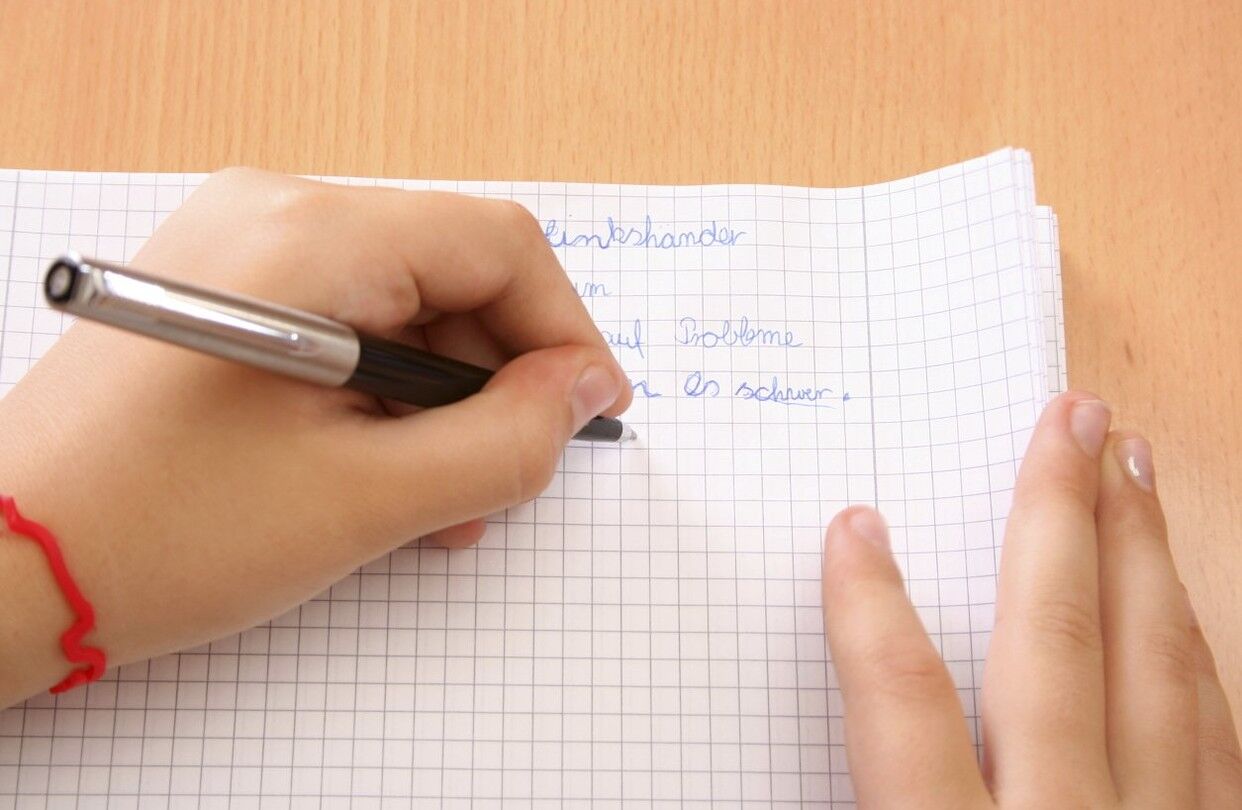 Linkshänder
auf Probleme
es schwer.